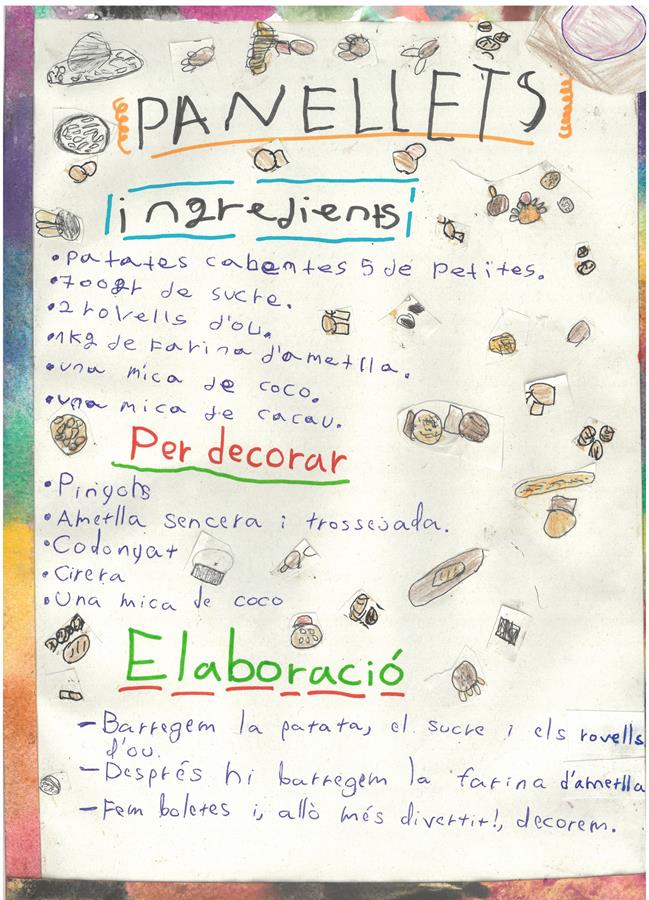 PANELLETS
ingredients
• Patates cabentes 5 de petites.
• 700gr de sucre.
• 2 rovells d'ou.
• 1kg de farina d'ametlla.
• una mica de coco.
• una mica de cacau.
Per decorar
• Pinyols
• Ametlla sencera i trossejada.
• Codonyat
• Cirera
• Una mica de coco
Elaboració
– Barregem la patata, el sucre i els rovells
d'ou.
– Després hi barregem la farina d'ametlla
– Fem boletes i, allò més divertit!, decorem.